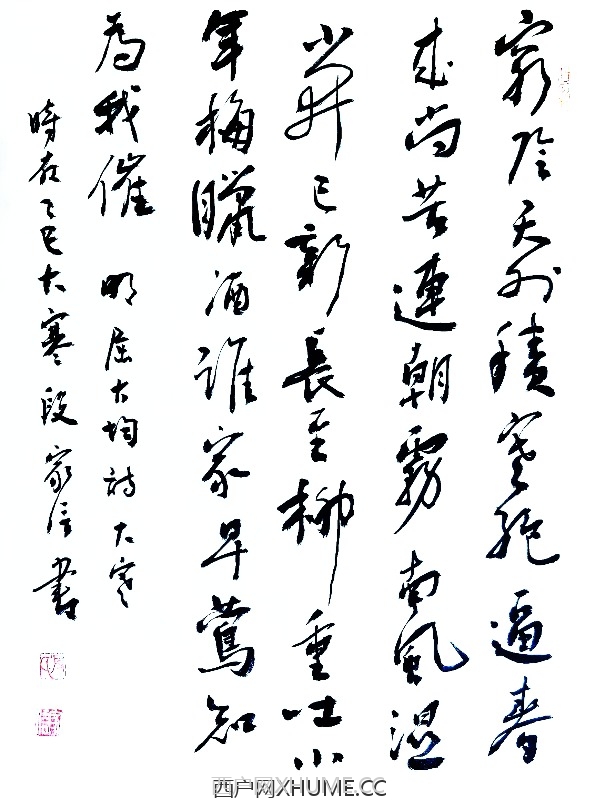 窮陰天外積寒絕逼春
來尚苦連朝霧南風濕
不開已新長至柳重吐小
年梅臘酒誰家早鶯知
為我催 明屈大均詩大寒
時在乙巳大寒段家信書
西户网XHUME.CC